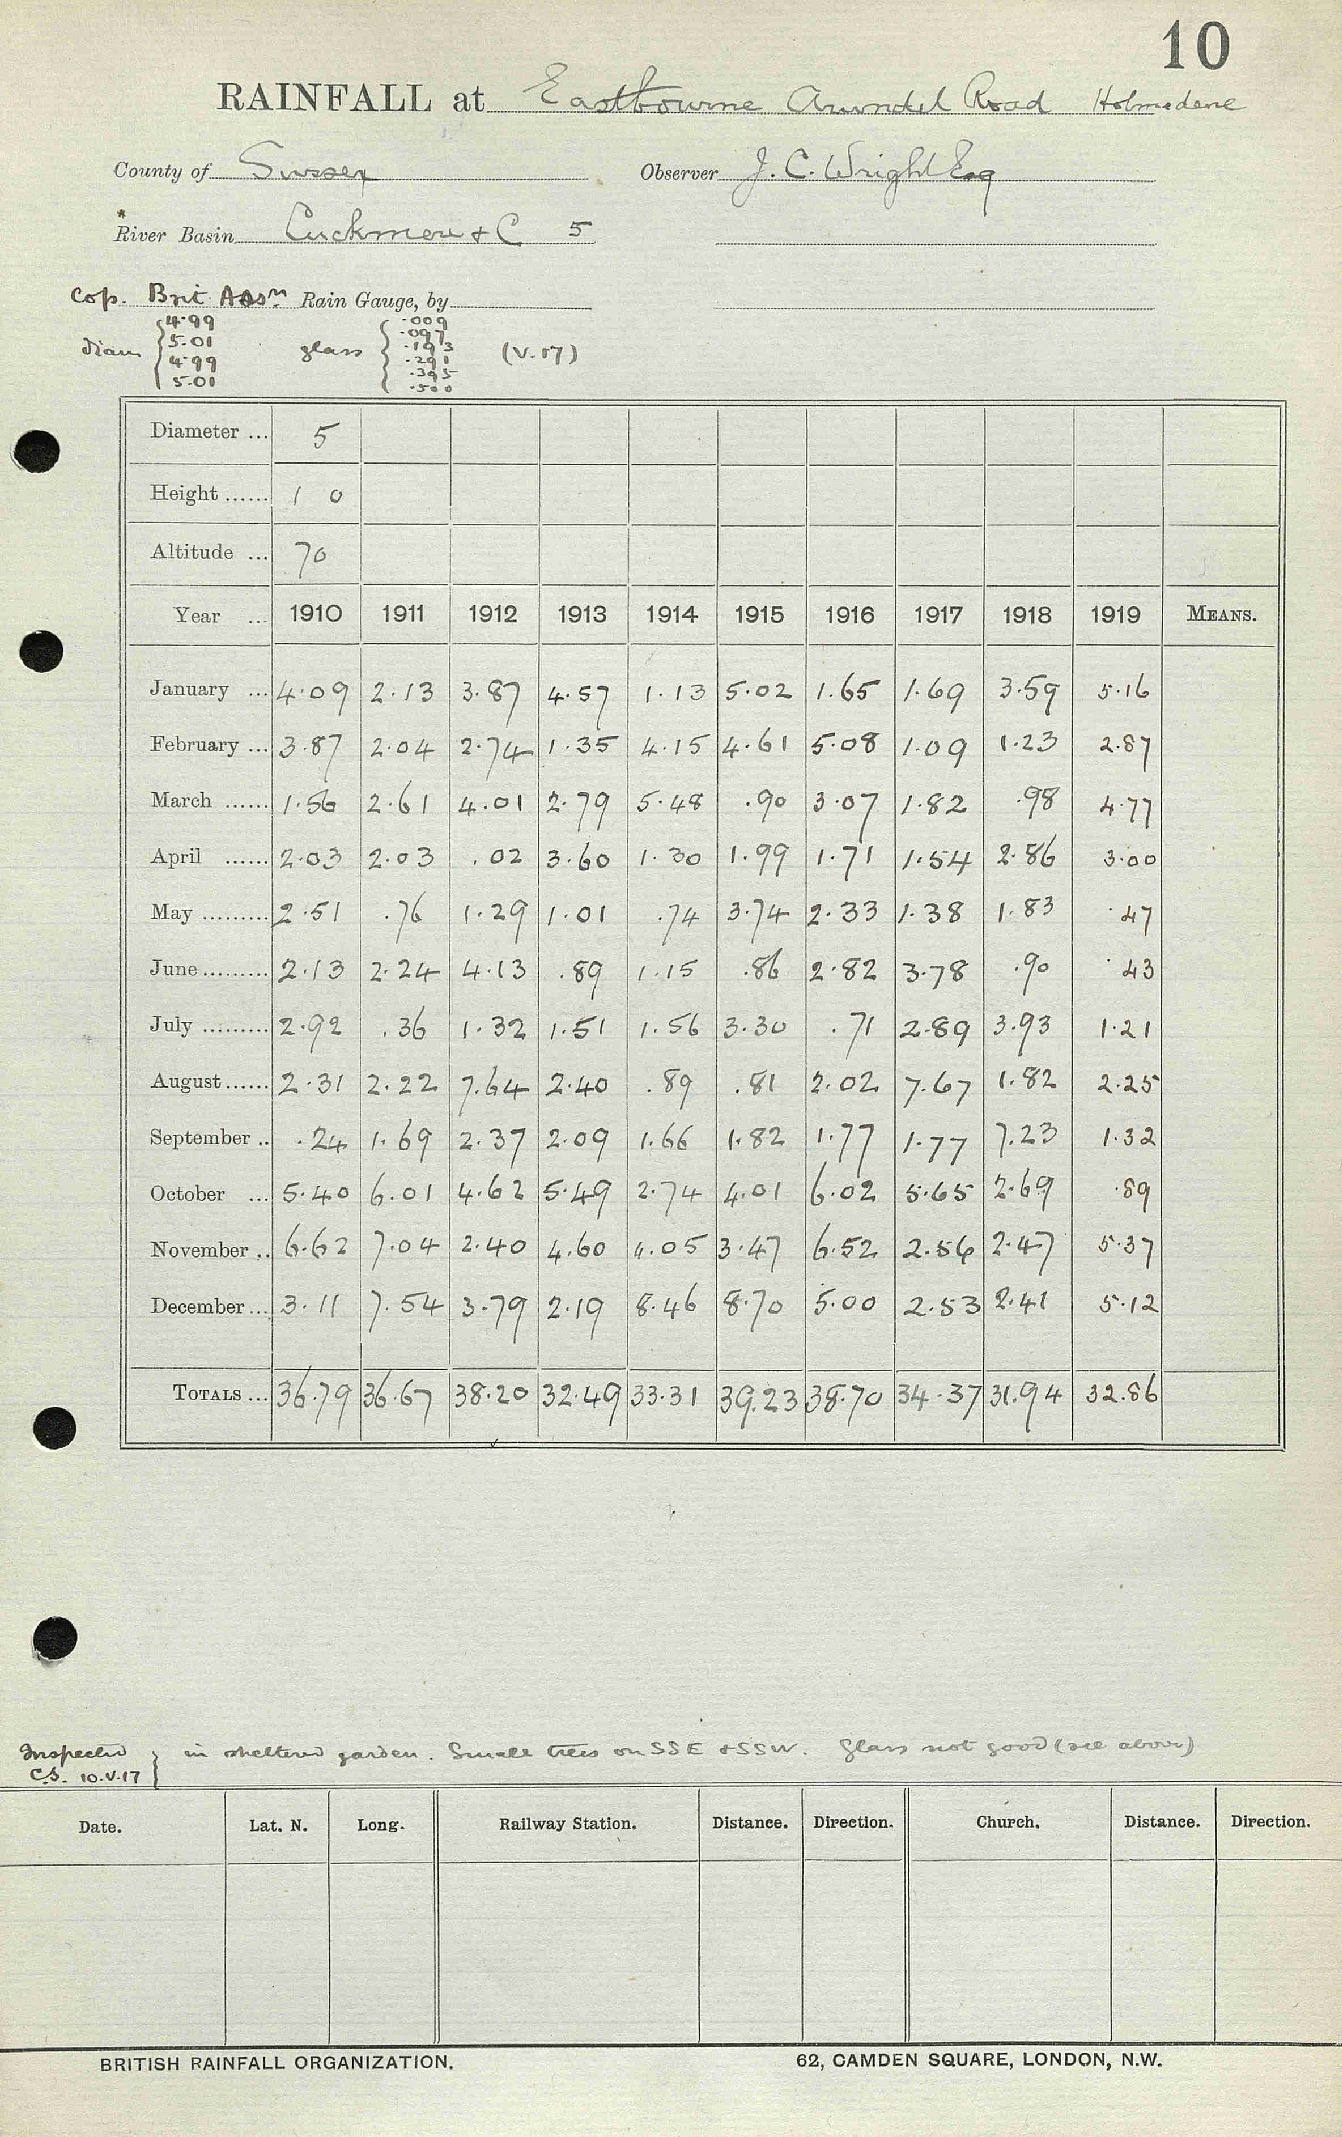 10
RAINFALL at Eastbourne Arundel Road Holmedene
County of Sussex Observer J. C. Wright Esq
* River Basin Cuckmere & C 5
Cop. Brit Assn Rain Gauge, by
diam { 4.99 5.01 4.99 5.01 glass { .009 .097 .193 .291 .395 .500 (V.17)
Diameter ... 5
Height ...... 1 0
Altitude ... 70
Year ... 1910 1911 1912 1913 1914 1915 1916 1917 1918 1919 MEANS.
January ... 4.09 2.13 3.87 4.57 1.13 5.02 1.65 1.69 3.59 5.16
February ... 3.87 2.04 2.74 1.35 4.15 4.61 5.08 1.09 1.23 2.87
March ...... 1.56 2.61 4.01 2.79 5.48 .90 3.07 1.82 .98 4.77
April ...... 2.03 2.03 .02 3.60 1.30 1.99 1.71 1.54 2.86 3.00
May ......... 2.51 .76 1.29 1.01 .74 3.74 2.33 1.38 1.83 .47
June ......... 2.13 2.24 4.13 .89 1.15 .86 2.82 3.78 .90 .43
July ......... 2.92 .36 1.32 1.51 1.56 3.30 .71 2.89 3.93 1.21
August ...... 2.31 2.22 7.64 2.40 .89 .81 2.02 7.67 1.82 2.25
September .. .24 1.69 2.37 2.09 1.66 1.82 1.77 1.77 7.23 1.32
October ... 5.40 6.01 4.62 5.49 2.74 4.01 6.02 5.65 2.69 .89
November .. 6.62 7.04 2.40 4.60 4.05 3.47 6.52 2.56 2.47 5.37
December ... 3.11 7.54 3.79 2.19 8.46 8.70 5.00 2.53 2.41 5.12
TOTALS ... 36.79 36.67 38.20 32.49 33.31 39.23 38.70 34.37 31.94 32.86
Inspected C.S. 10.V.17 } in sheltered garden. Small trees on SSE & SSW. Glass not good (see above)
Date. Lat. N. Long. Railway Station. Distance. Direction. Church. Distance. Direction.
BRITISH RAINFALL ORGANIZATION. 62, CAMDEN SQUARE, LONDON, N.W.